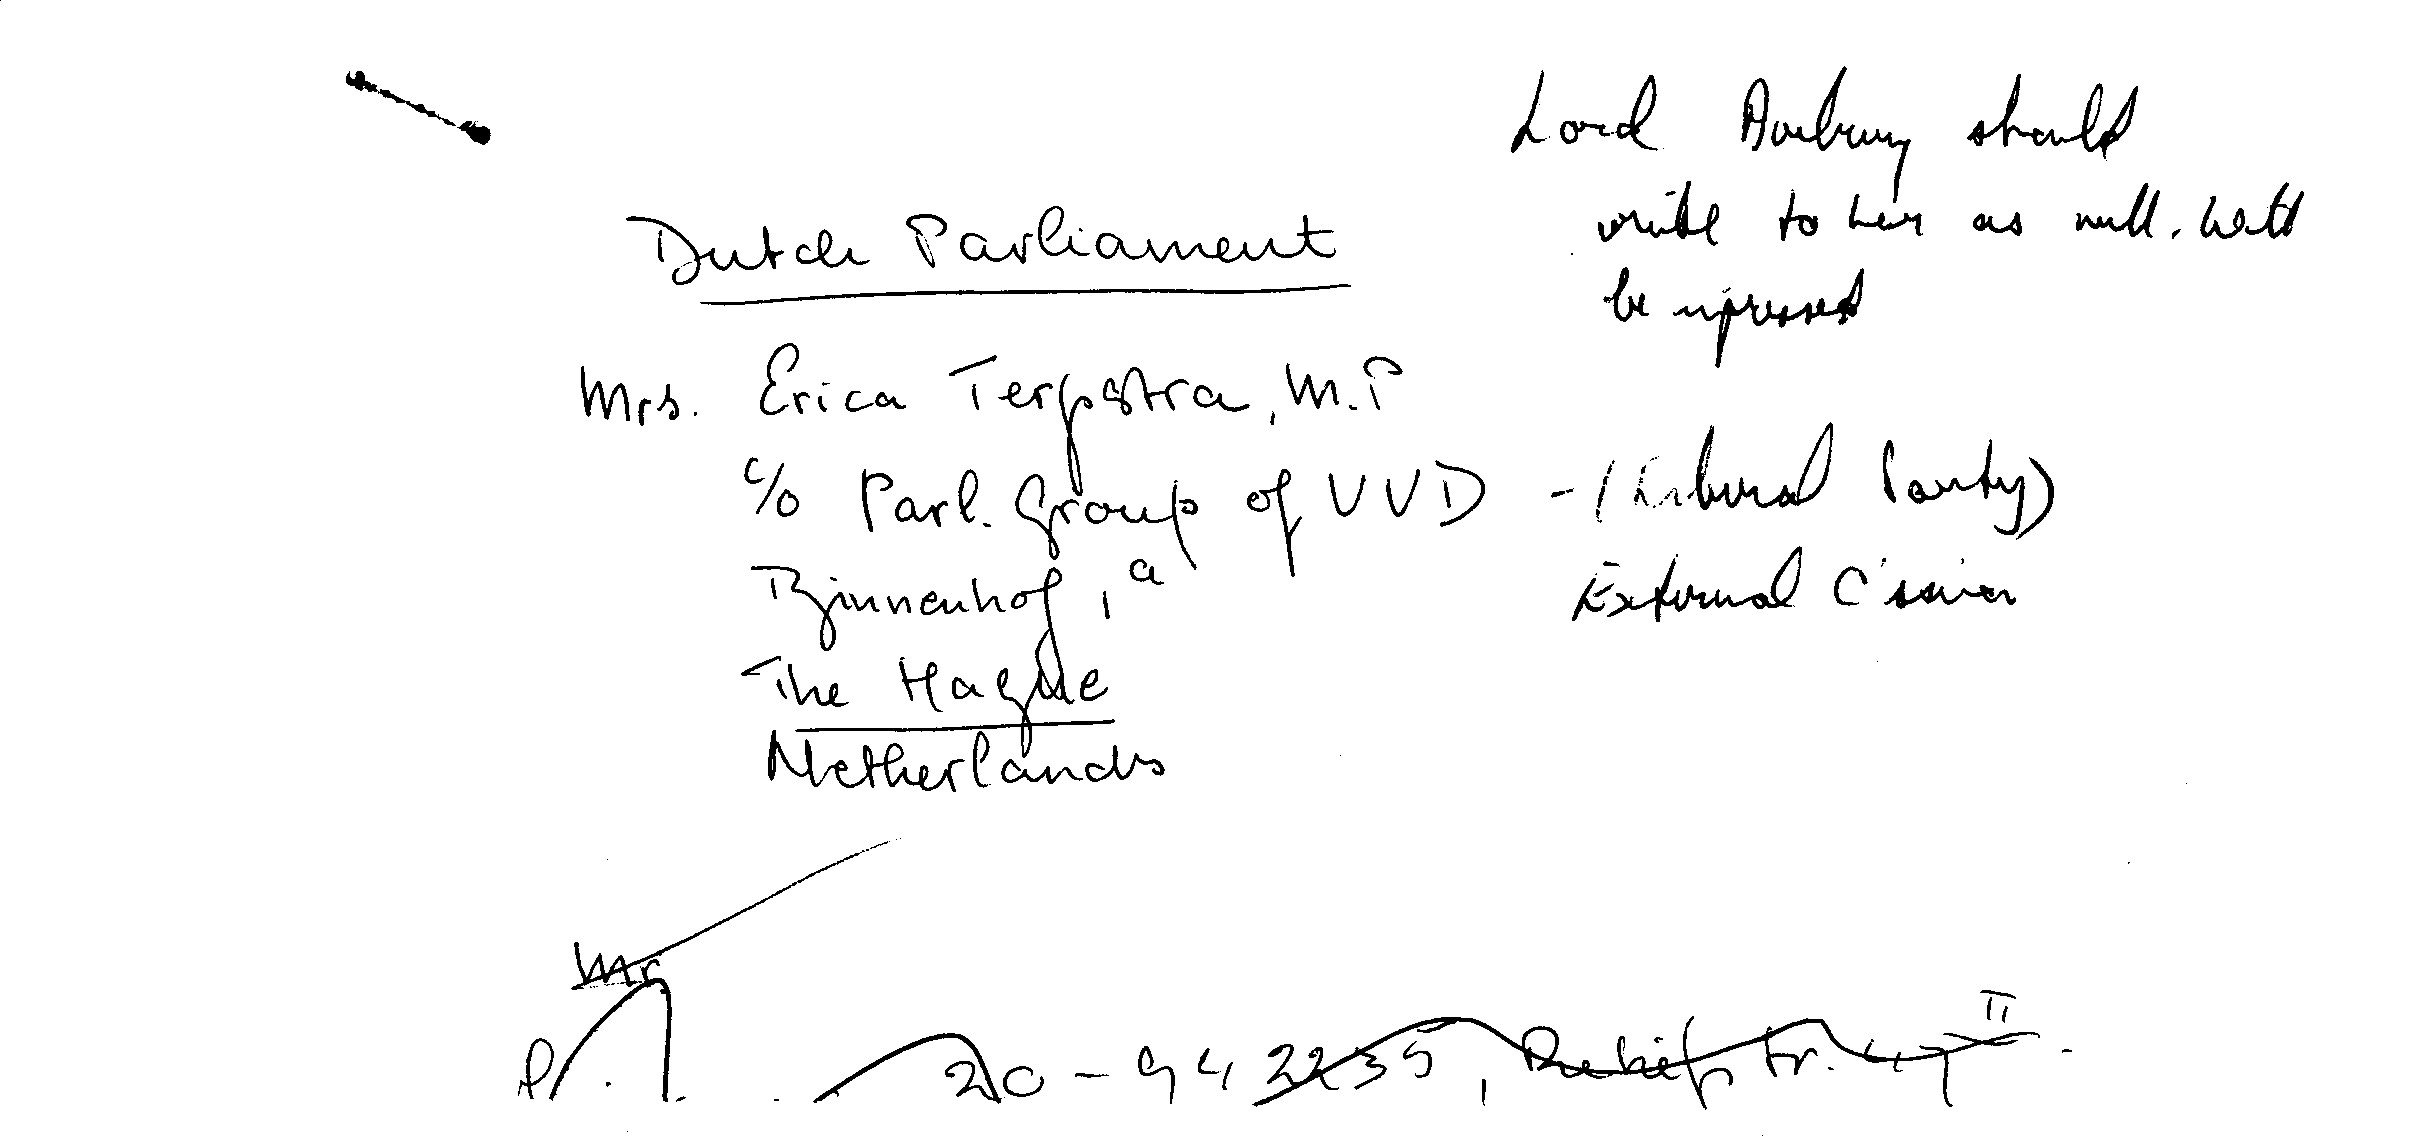 Lord Avebury should
write to her as well. Will
be impressed
Dutch Parliament
Mrs. Erica Terpstra, M.P
c/o Parl. Group of VVD - (Liberal Party)
Binnenhof, 1a
External C'ssion
The Hague
Netherlands
Mr
20-942235,